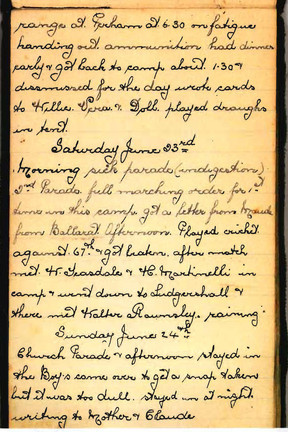 range at Perham at 6.30 on fatigue
handing out ammunition had dinner
early & got back to camp about 1.30 &
dissmissed for the day wrote cards
to Nellie. Vera & Doll. played draughs
in tent.
Saturday June 23rd
Morning sick parade (indigestion)
2nd Parade full marching order for 1st
time in this camp. got a letter from Maude
from Ballarat Afternoon. Played cricket
against 67th & got beaten. after match
met W. Teasdale & C. Martinelli in
camp & went down to Ludgershall &
there met Walter Rawnsley. raining
Sunday June 24th
Church Parade & afternoon stayed in
the Boys came over to get a snap taken
but it was too dull. stayed in at night
writing to Mother & Claude